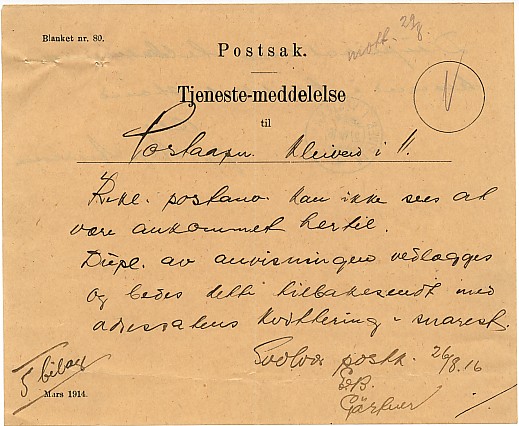 Blanket nr. 80.
Postsak.
mott. 29/8.
Tjeneste-meddelelse
til
Postaapn. Kleiven i V.
Rekl. postanv. kan ikke sees at
være ankommet hertil.
Dupl. av anvisningen vedlægges
og bedes dette tilbakesendt med
adressatens kvittering snarest.
Svolvær postk. 26/8.16
E.B.
Gärtner
5 bilag
Mars 1914.